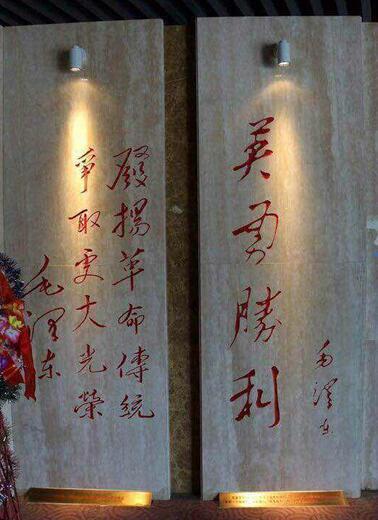 英勇勝利
毛澤东
發揚革命傳統
爭取更大光榮
毛澤东